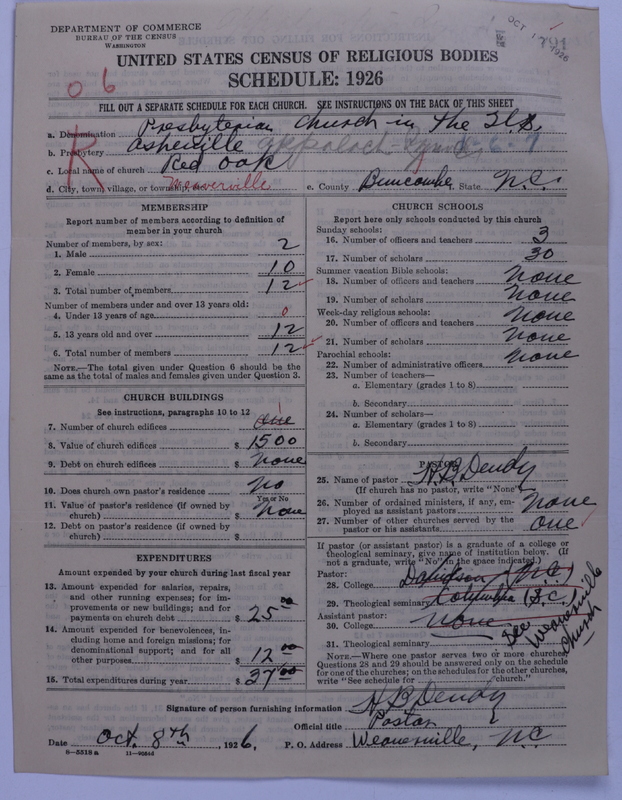 DEPARTMENT OF COMMERCE
BUREAU OF THE CENSUS
WASHINGTON
OCT 1926
UNITED STATES CENSUS OF RELIGIOUS BODIES
SCHEDULE: 1926
06
R
FILL OUT A SEPARATE SCHEDULE FOR EACH CHURCH. SEE INSTRUCTIONS ON THE BACK OF THIS SHEET
a. Denomination Presbyterian Church in the U.S.
b. Presbytery Asheville
c. Local name of church Red Oak
d. City, town, village, or township, Weaverville e. County Buncombe f. State N.C.
MEMBERSHIP
Report number of members according to definition of member in your church
Number of members, by sex:
1. Male 2
2. Female 10
3. Total number of members 12
Number of members under and over 13 years old:
4. Under 13 years of age 0
5. 13 years old and over 12
6. Total number of members 12
NOTE.—The total given under Question 6 should be
same as the total of males and females given under Question 3.
CHURCH BUILDINGS
See instructions, paragraphs 10 to 12
7. Number of church edifices one 1
8. Value of church edifices $ 1500
9. Debt on church edifices $ None
10. Does church own pastor's residence No
Yes or No
11. Value of pastor's residence (if owned by
church) $ None
12. Debt on pastor's residence (if owned by
church) $
EXPENDITURES
Amount expended by your church during last fiscal year
13. Amount expended for salaries, repairs,
and other running expenses; for im-
provements or new buildings; and for
payments on church debt $ 25 00
14. Amount expended for benevolences, in-
cluding home and foreign missions; for
denominational support; and for all
other purposes $ 12 00
15. Total expenditures during year $ 37 00
CHURCH SCHOOLS
Report here only schools conducted by this church
Sunday schools:
16. Number of officers and teachers 3
17. Number of scholars 30
Summer vacation Bible schools:
18. Number of officers and teachers None
19. Number of scholars None
Week-day religious schools:
20. Number of officers and teachers None
21. Number of scholars None
Parochial schools:
22. Number of administrative officers None
23. Number of teachers—
a. Elementary (grades 1 to 8)
b. Secondary
24. Number of scholars—
a. Elementary (grades 1 to 8)
b. Secondary
PASTOR
25. Name of pastor H.B. Dendy
(If church has no pastor, write "None")
26. Number of ordained ministers, if any, em-
ployed as assistant pastors None
27. Number of other churches served by the
pastor or his assistants one
If pastor (or assistant pastor) is a graduate of a college or
theological seminary, give name of institution below. (If
not a graduate, write "No" in the space indicated.)
Pastor:
28. College Davidson (N.C.)
29. Theological seminary Columbia (S.C.)
Assistant pastor:
30. College None
31. Theological seminary
See Weaverville Church
NOTE.—Where one pastor serves two or more churches
Questions 28 and 29 should be answered only on the schedule
for one of the churches; on the schedules for the other churches,
write "See schedule for church."
Signature of person furnishing information H.B. Dendy
Official title Pastor
Date Oct. 8th, 1926. P. O. Address Weaverville, N.C.
6—5518a